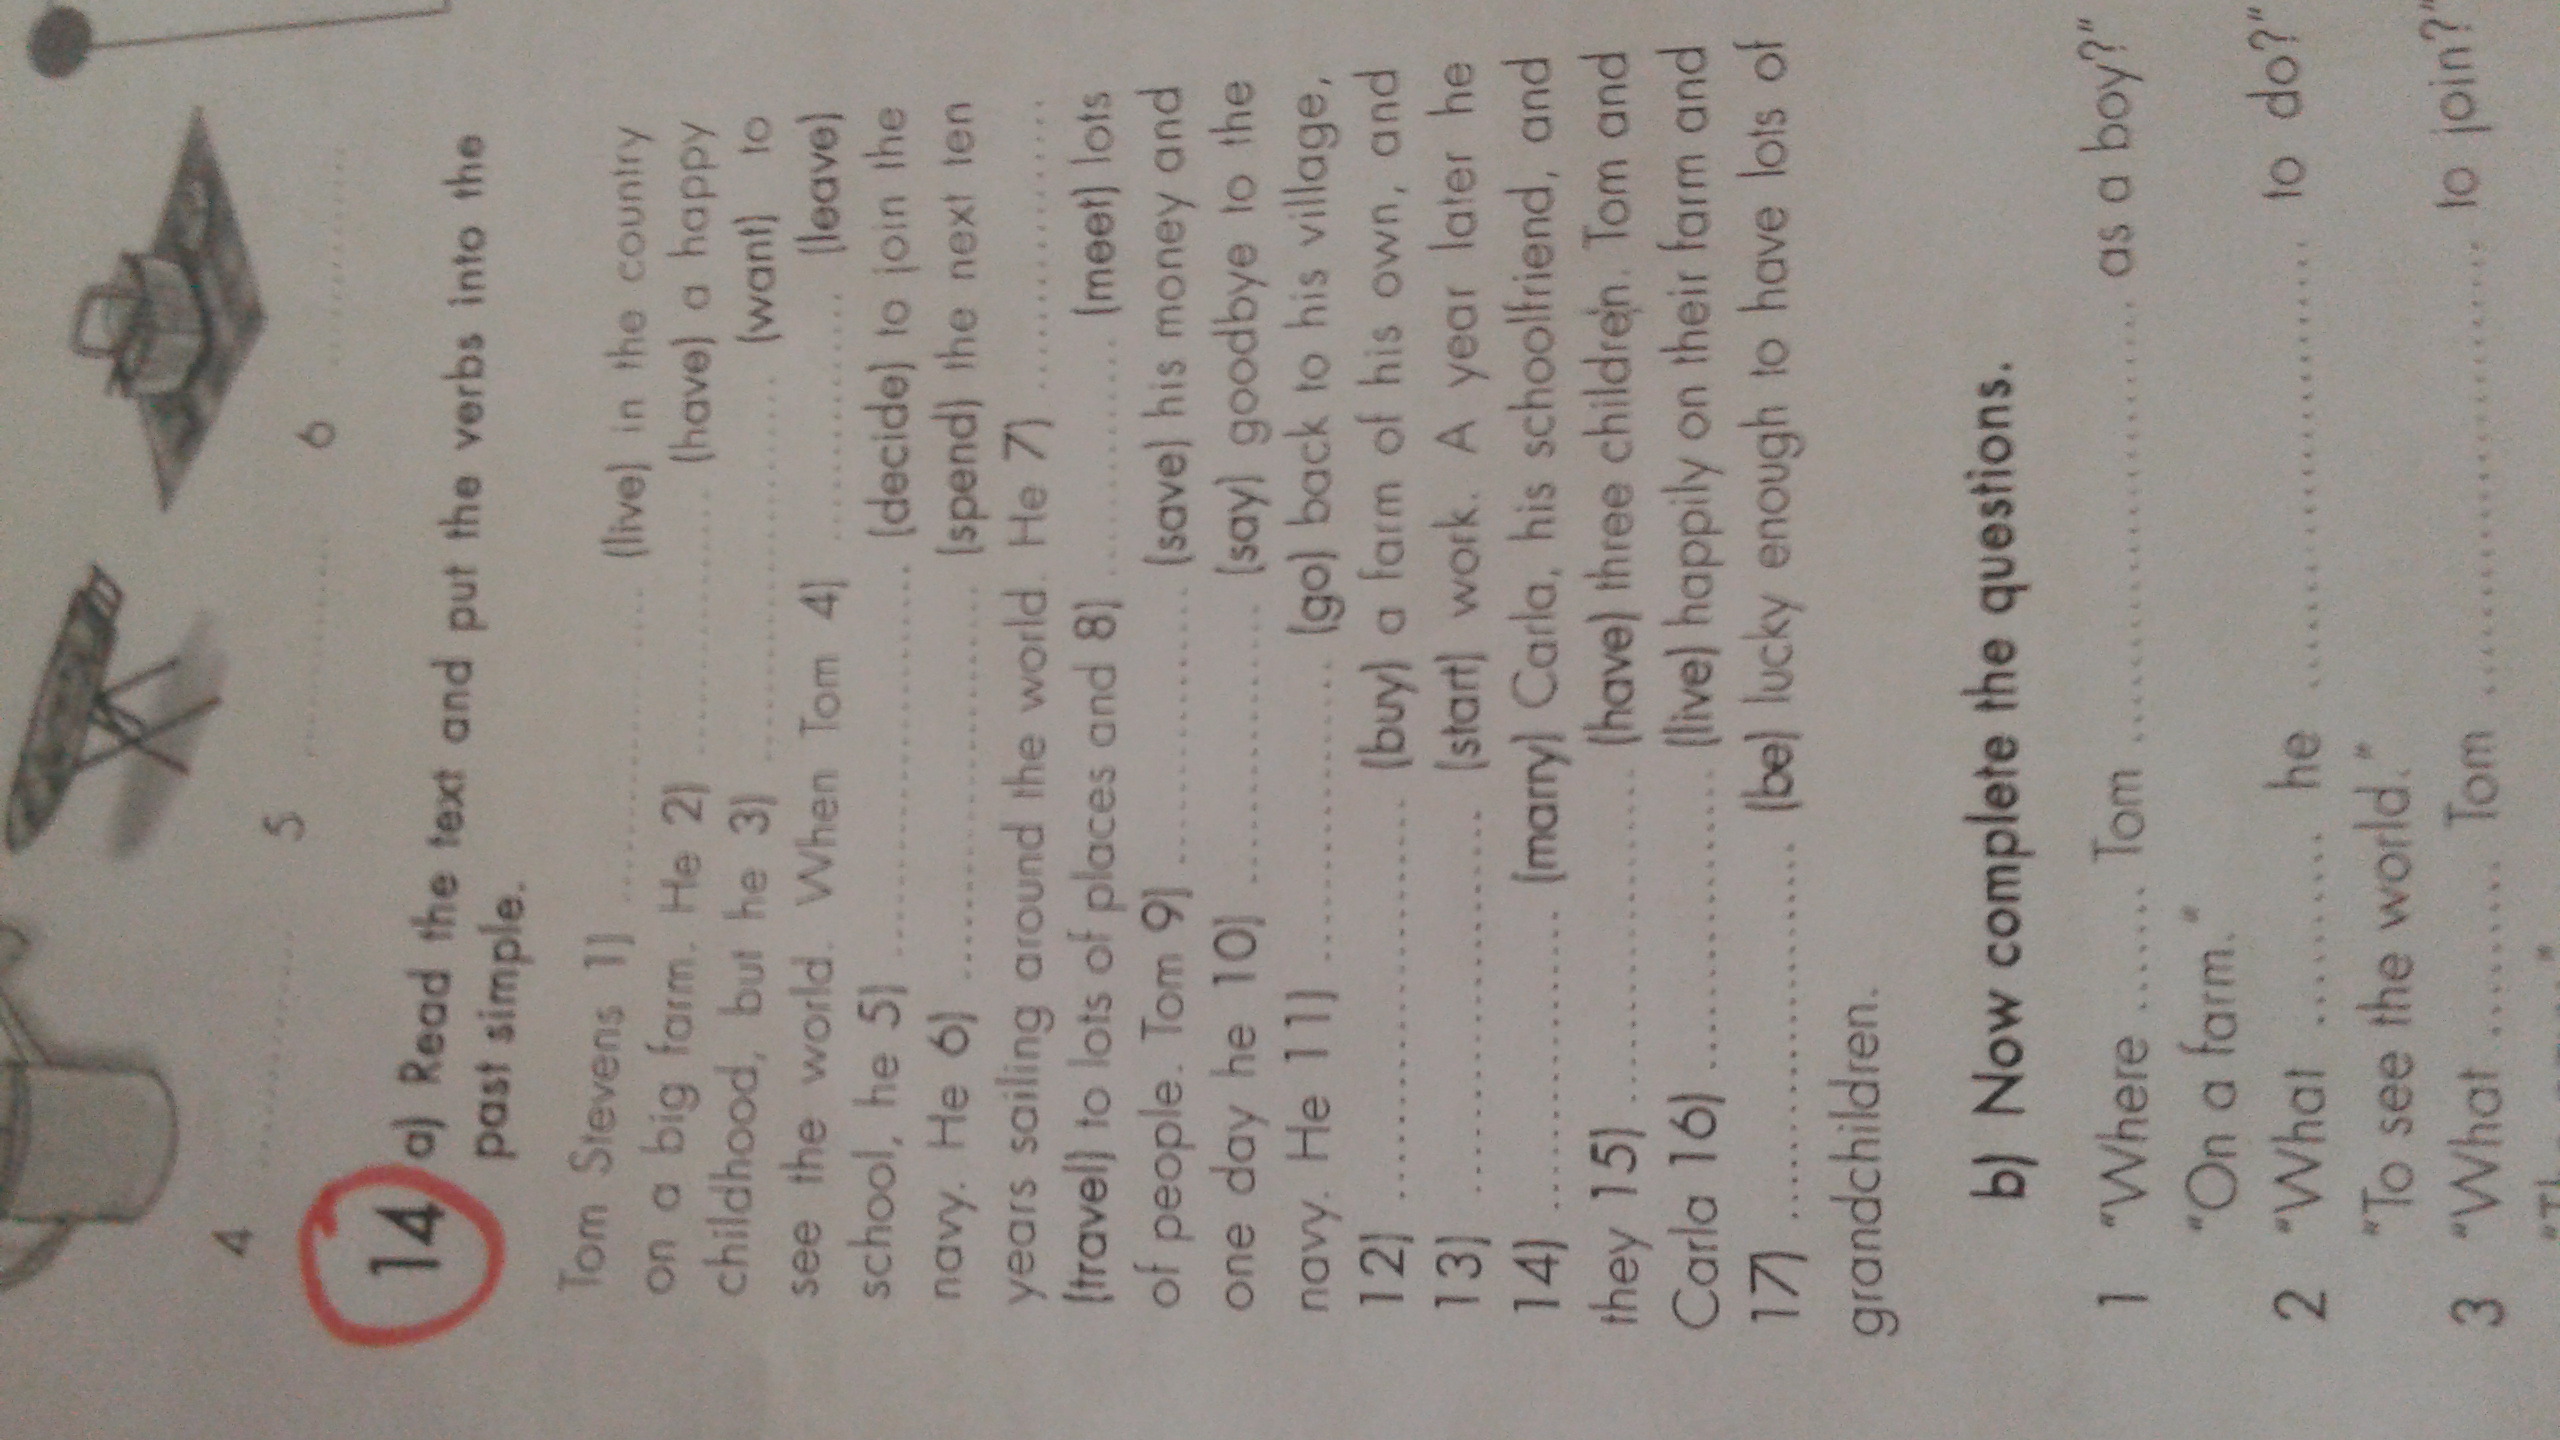 4 .................... 5 .................... 6 ....................
14 a) Read the text and put the verbs into the
past simple.
Tom Stevens 1) .................... (live) in the country
on a big farm. He 2) .................... (have) a happy
childhood, but he 3) .................... (want) to
see the world. When Tom 4) .................... (leave)
school, he 5) .................... (decide) to join the
navy. He 6) .................... (spend) the next ten
years sailing around the world. He 7) ....................
(travel) to lots of places and 8) .................... (meet) lots
of people. Tom 9) .................... (save) his money and
one day he 10) .................... (say) goodbye to the
navy. He 11) .................... (go) back to his village,
12) .................... (buy) a farm of his own, and
13) .................... (start) work. A year later he
14) .................... (marry) Carla, his schoolfriend, and
they 15) .................... (have) three children. Tom and
Carla 16) .................... (live) happily on their farm and
17) .................... (be) lucky enough to have lots of
grandchildren.
b) Now complete the questions.
1 "Where ....... Tom .................... as a boy?"
"On a farm."
2 "What .......... he .................... to do?"
"To see the world."
3 "What .......... Tom .................... to join?"